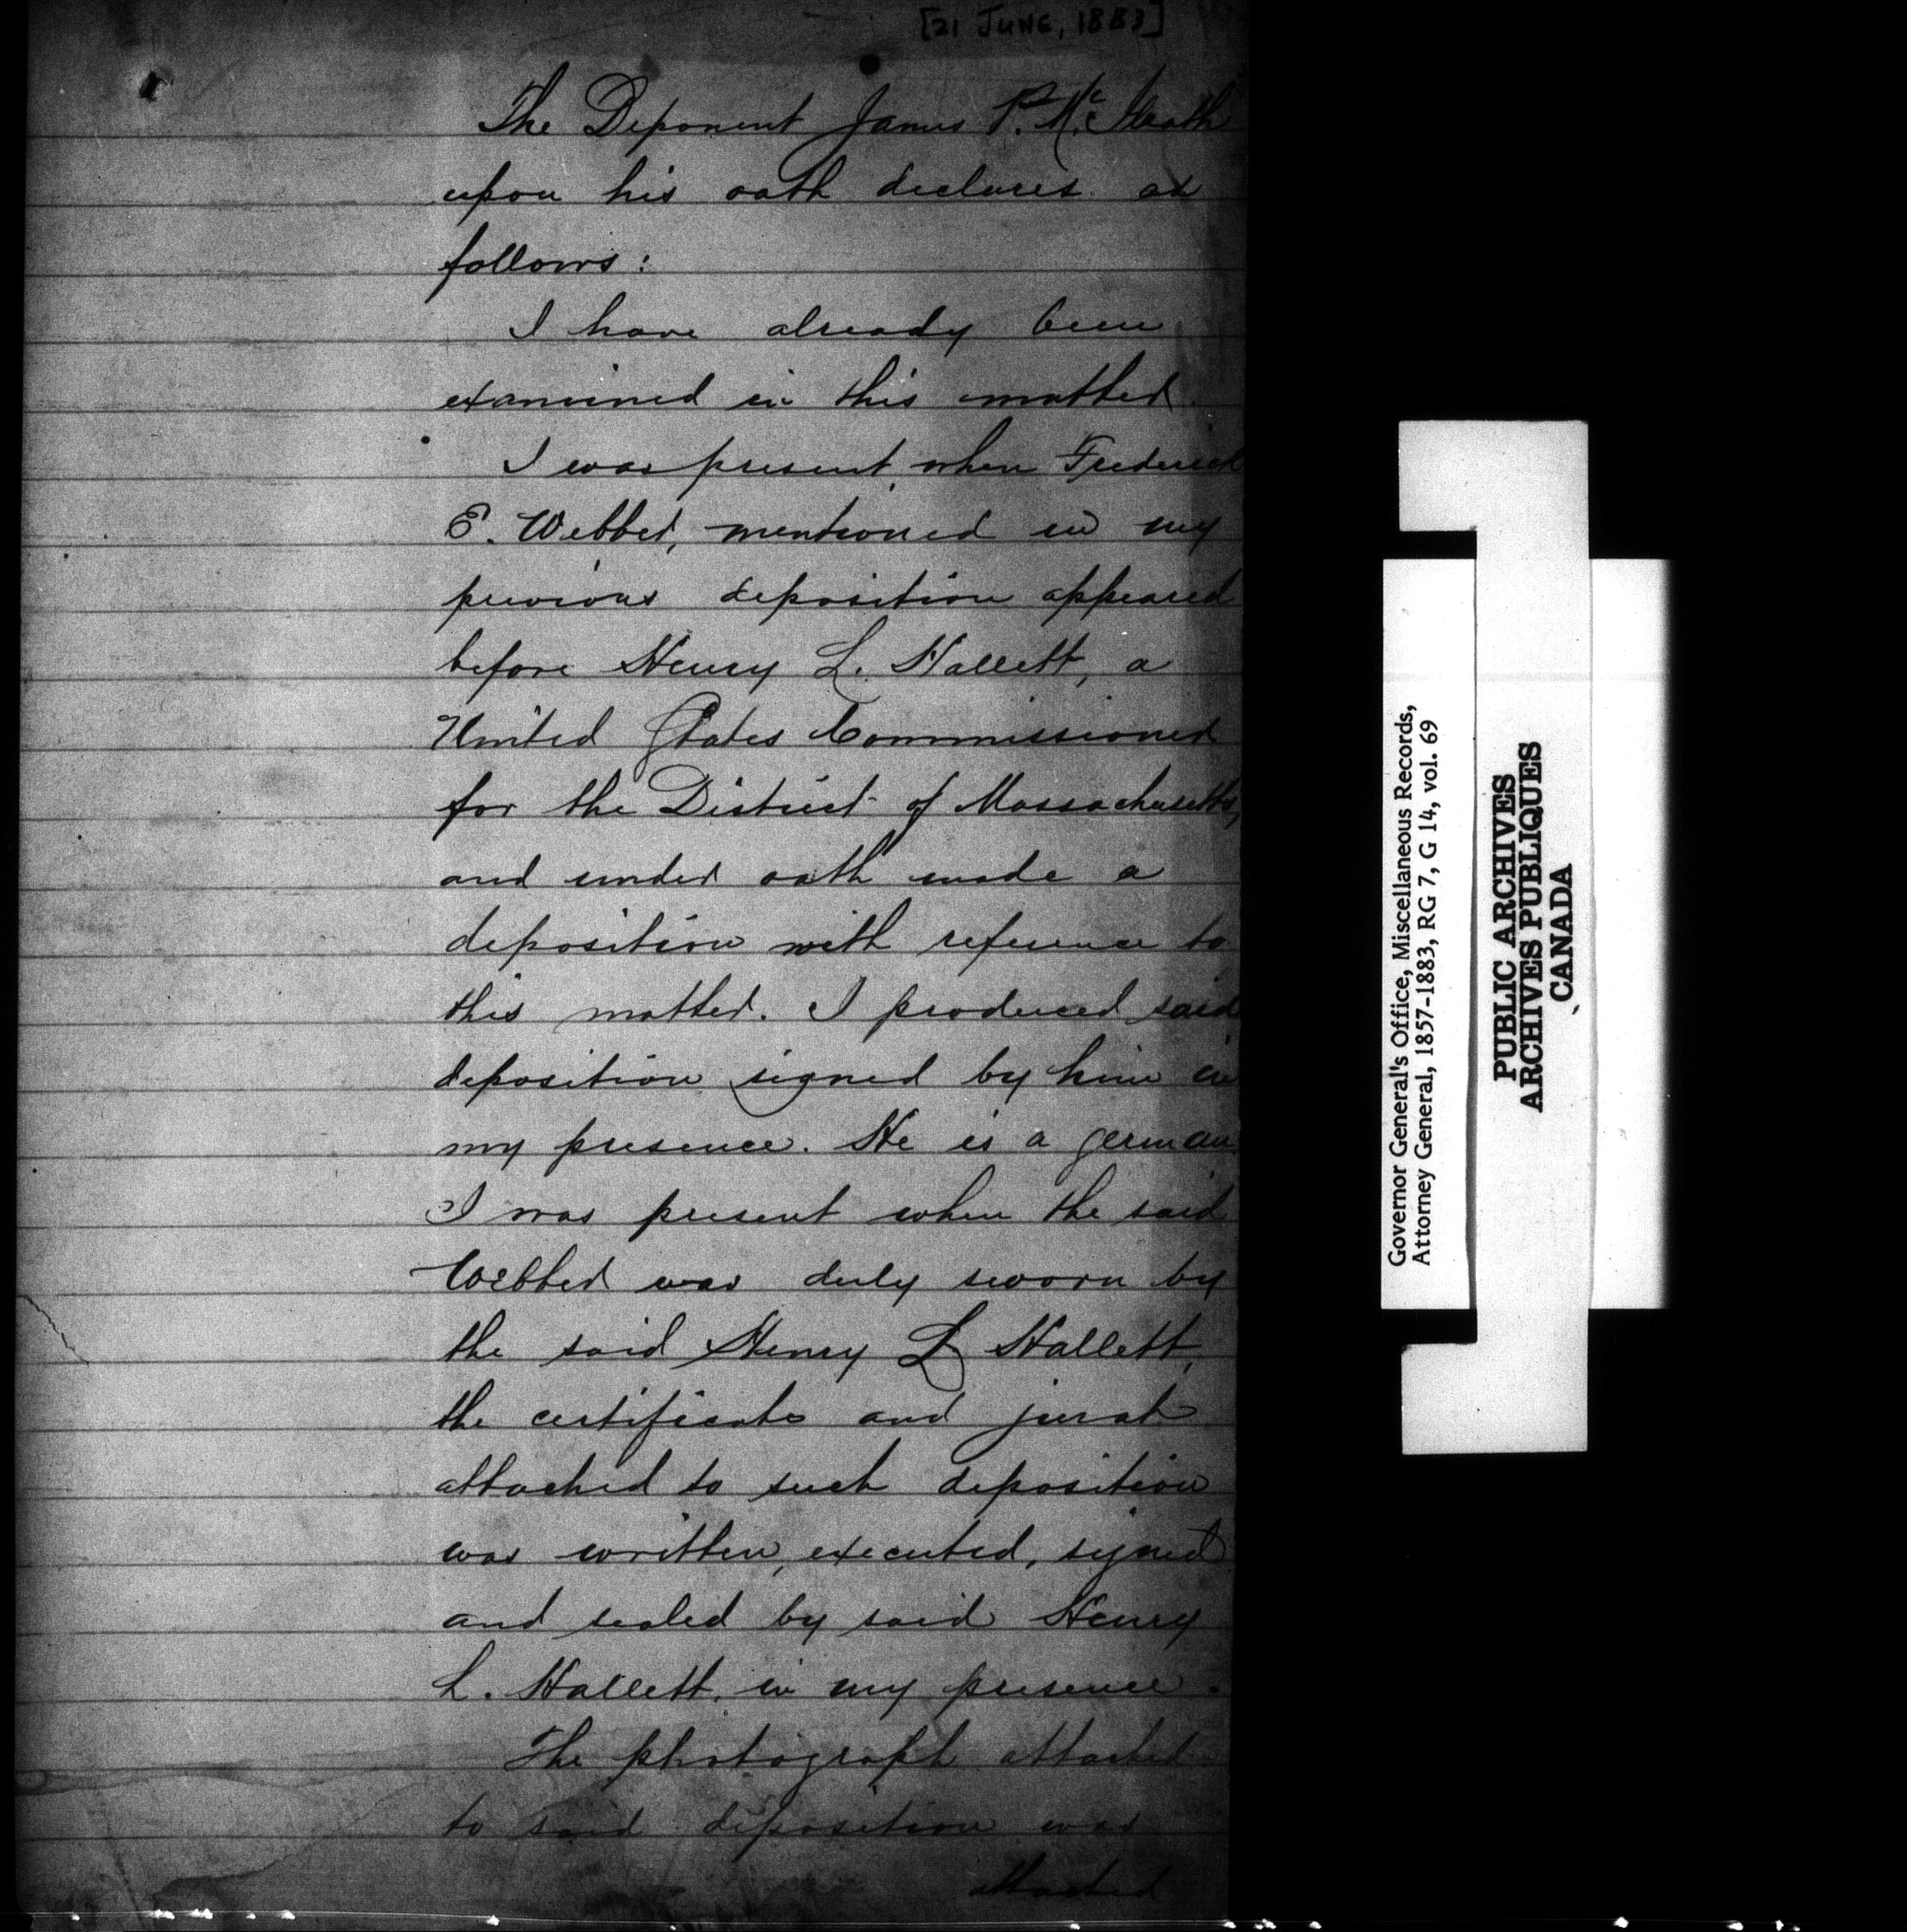 [21 JUNE, 1883]
The Deponent James P. Mc
upon his oath declares as
follows:
I have already been
examined in this matter.
I was present when Frederick
E. Webber, mentioned in my
previous deposition appeared
before Henry L. Hallett, a
United States Commissioner
for the District of Massachusetts,
and under oath made a
deposition with reference to
this matter. I produced said
deposition signed by him in
my presence. He is a german
I was present when the said
Webber was duly sworn by
the said Henry L Hallett,
the certificate and jurat
attached to such deposition
was written, executed, signed
and sealed by said Henry
L. Hallett, in my presence.
The photograph attached
to said deposition was
attached
Governor General's Office, Miscellaneous Records,
Attorney General, 1857-1883, RG 7, G 14, vol. 69
PUBLIC ARCHIVES
ARCHIVES PUBLIQUES
CANADA